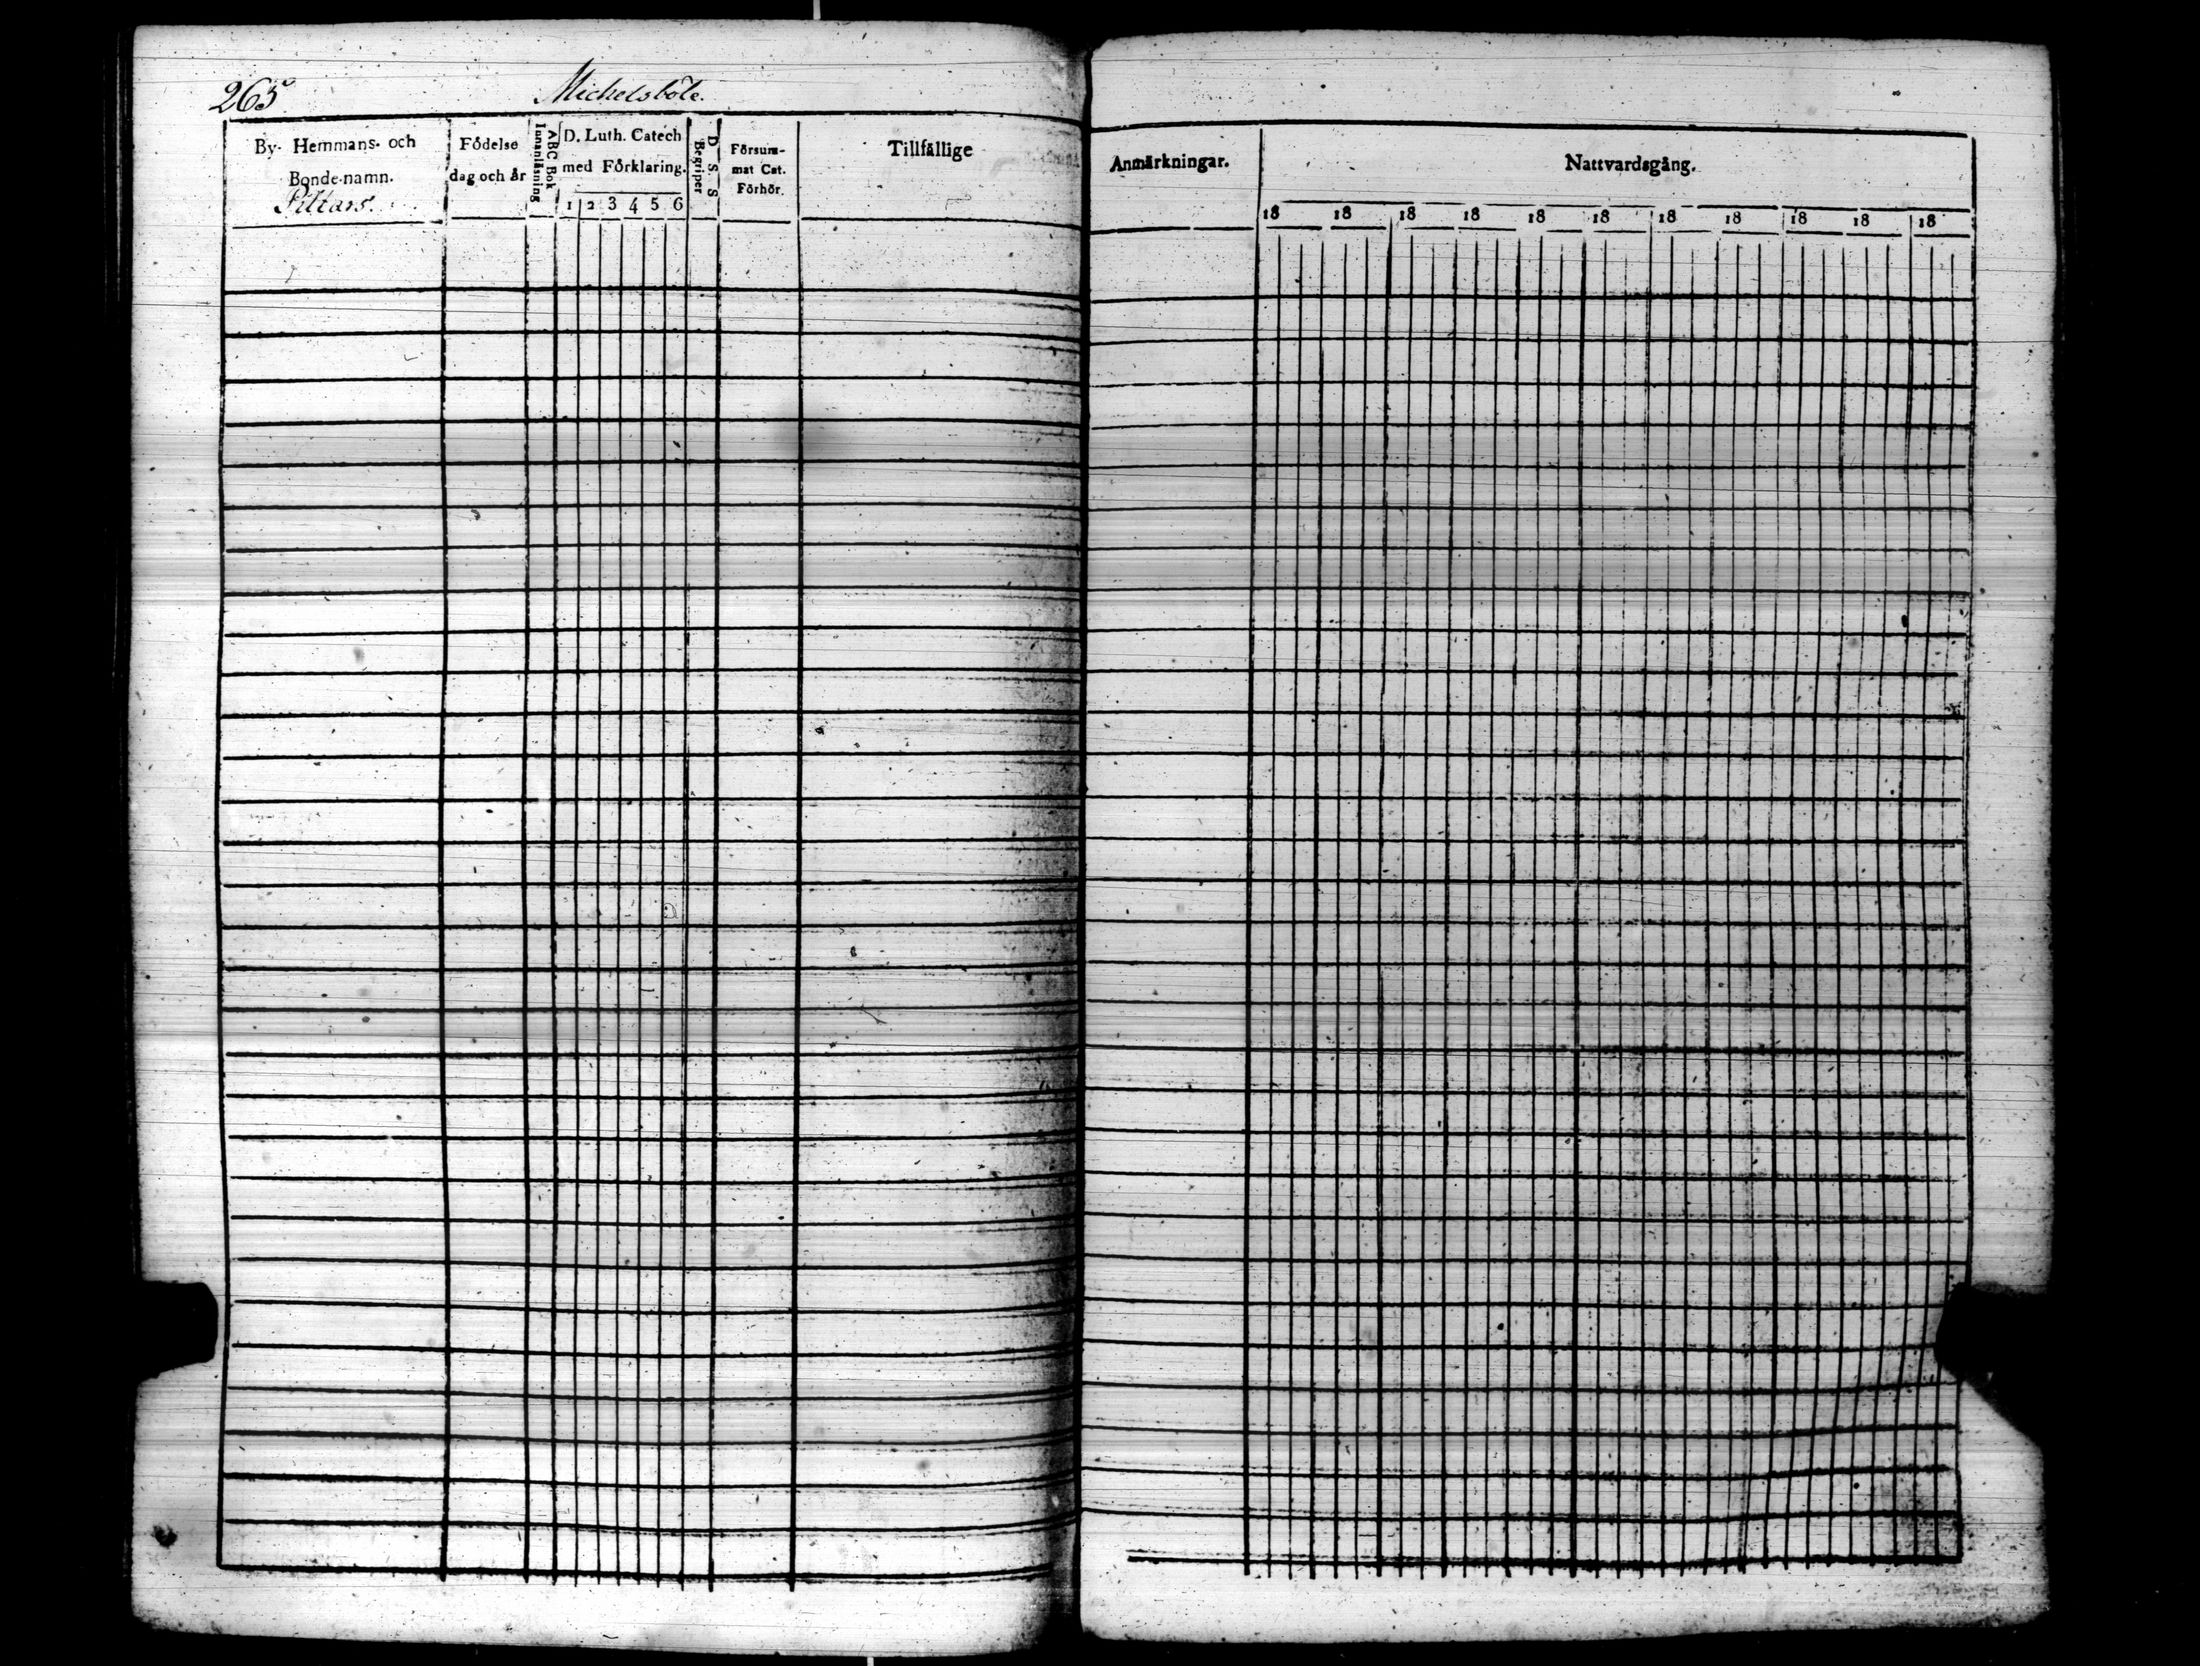 265
Michelsböle.
By- Hemmans- och Bonde-namn.
Pittars.
Födelse dag och år
ABC Bok
Innanläsning
D. Luth. Catech med Förklaring.
1 2 3 4 5 6
D. S. S
Begriper
Försum-
mat Cat.
Förhör.
Tillfällige
Anmärkningar.
Nattvardsgång.
18 18 18 18 18 18 18 18 18 18 18